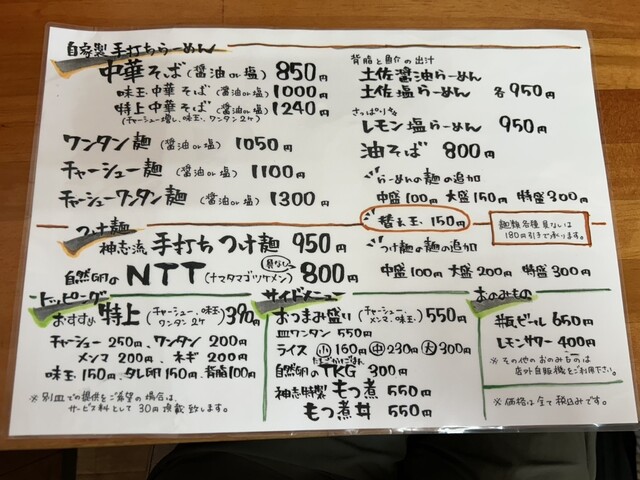 自家製 手打ちらーめん
中華そば(醤油or塩) 850円
味玉中華そば(醤油or塩) 1000円
特上中華そば(醤油or塩) 1240円
(チャーシュー増し、味玉、ワンタン2ケ)
ワンタン麺(醤油or塩) 1050円
チャーシュー麺(醤油or塩) 1100円
チャーシューワンタン麺(醤油or塩) 1300円
背脂と魚介の出汁
土佐醤油らーめん
土佐塩らーめん 各950円
さっぱり
レモン塩らーめん 950円
油そば 800円
らーめんの麺の追加
中盛100円 大盛150円 特盛300円
替え玉、150円
麺類各種具なしは
180円引きで承ります。
つけ麺
神志流 手打ちつけ麺 950円
具なし
自然卵のNTT(ナマタマゴツケメン) 800円
つけ麺の麺の追加
中盛100円 大盛200円 特盛300円
トッピング
おすすめ 特上(チャーシュー、味玉、ワンタン2ケ) 390円
チャーシュー 250円、ワンタン 200円
メンマ 200円、ネギ 200円
味玉 150円、タレ卵150円、背脂100円
※別皿での提供をご希望の場合は、
サービス料として30円頂戴致します。
サイドメニュー
おつまみ盛い(チャーシュー、メンマ、味玉) 550円
皿ワンタン 550円
ライス 小160円 中230円 大300円
たまごかけごはん
自然卵のTKG 300円
神志特製 もつ煮 550円
もつ煮丼 550円
おのみもの
瓶ビール 650円
レモンサワー 400円
※その他のおのみものは
店外自販機をご利用下さい。
※価格は全て税込みです。